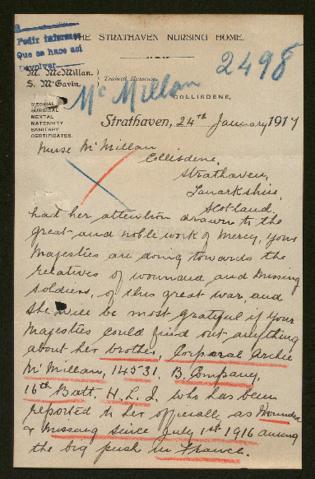 THE STRATHAVEN NURSING HOME.
Pedir informes
Que se hace así
Devolver
M. McMillan.
S. McGavin.
Trained Nurses.
2498
McMillan
COLLISDENE,
MEDICAL
SURGICAL
MENTAL
MATERNITY
SANITARY
CERTIFICATES.
Strathaven, 24th January 1917
Nurse McMillan
Collisdene,
Strathaven,
Lanarkshire,
Scotland.
had her attention drawn to the
great and noble work of Mercy, Your
Majesties are doing towards the
relatives of wounded and missing
soldiers, of this great war, and
She will be most grateful if Your
Majesties could find out anything
about her brother, Corporal Archie
McMillan, 14531, B. Company,
16th Batt. H.L.I. who has been
reported to her officially as Wounded
& Missing since July 1st 1916 among
the big push in France.